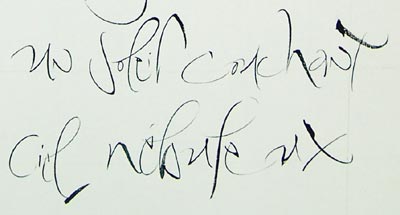 un soleil couchant
ciel nébuleux